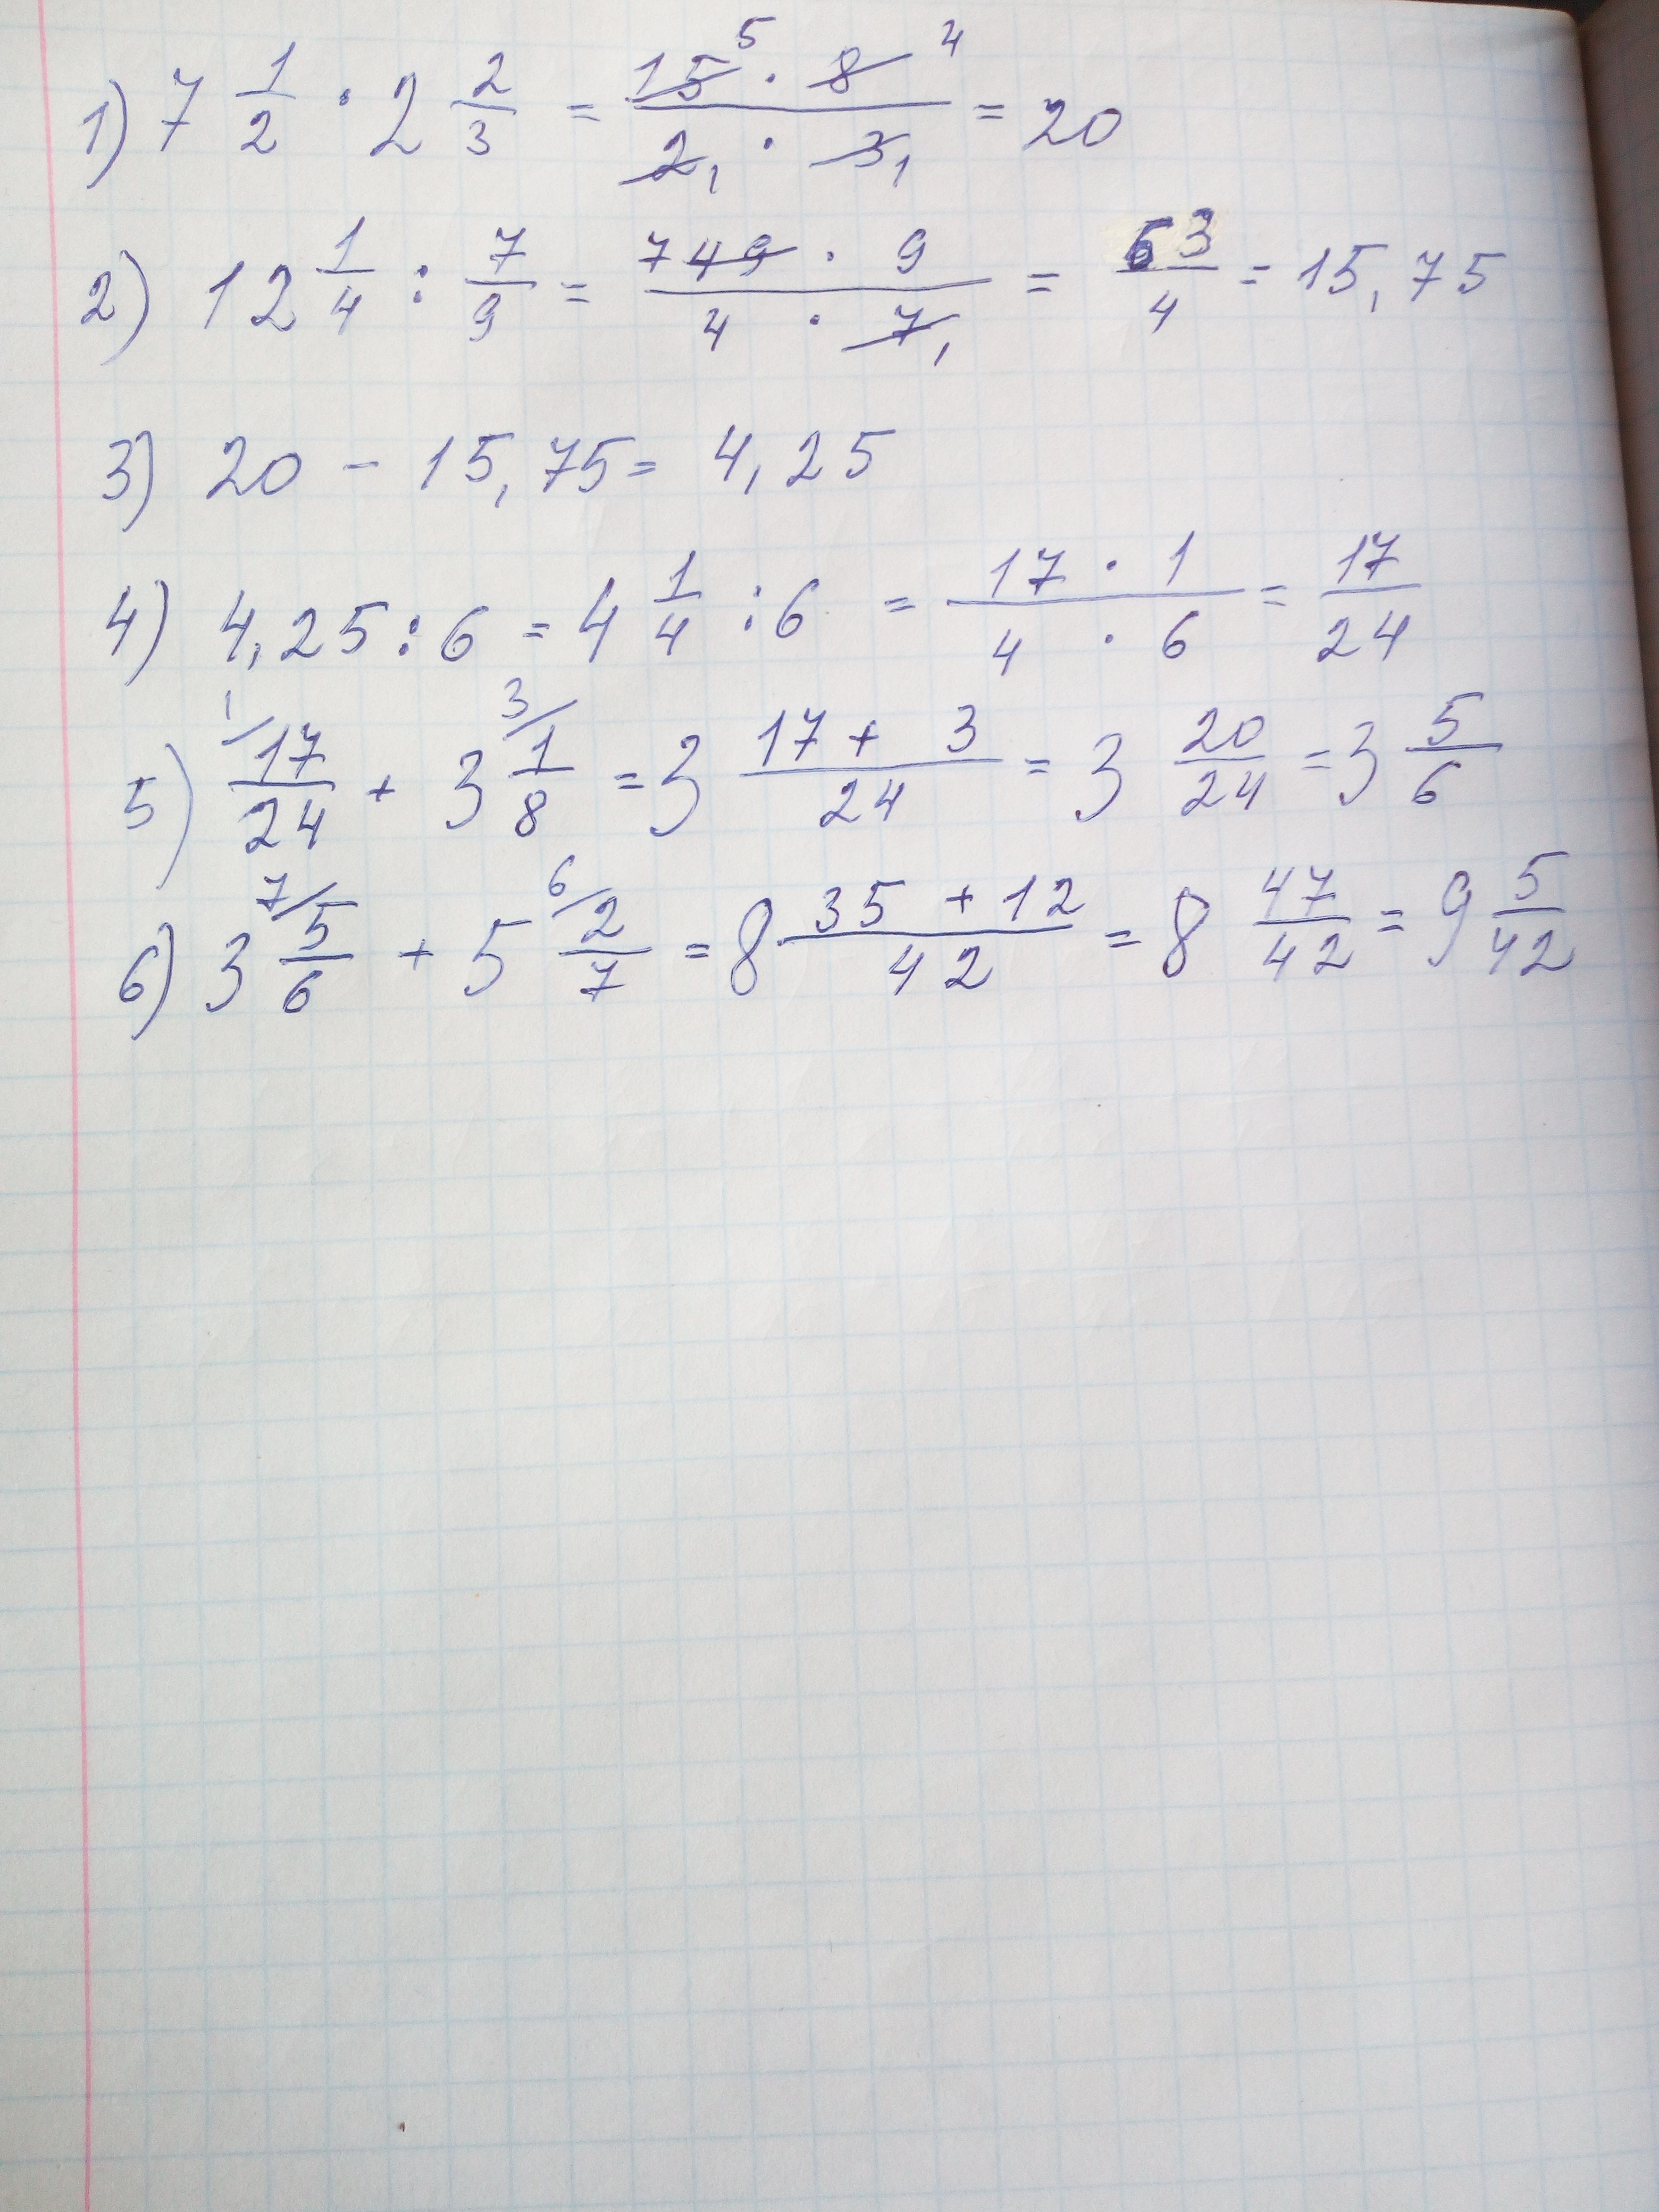 1) 7 1/2 · 2 2/3 = (15⁵ · 8⁴)/(2₁ · 3₁) = 20
2) 12 1/4 : 7/9 = (⁷49 · 9)/(4 · 7₁) = 63/4 = 15,75
3) 20 - 15,75 = 4,25
4) 4,25 : 6 = 4 1/4 : 6 = (17 · 1)/(4 · 6) = 17/24
5) ¹⁄ 17/24 + 3 ³⁄ 1/8 = 3 (17 + 3)/24 = 3 20/24 = 3 5/6
6) 3 ⁷⁄ 5/6 + 5 ⁶⁄ 2/7 = 8 (35 + 12)/42 = 8 47/42 = 9 5/42